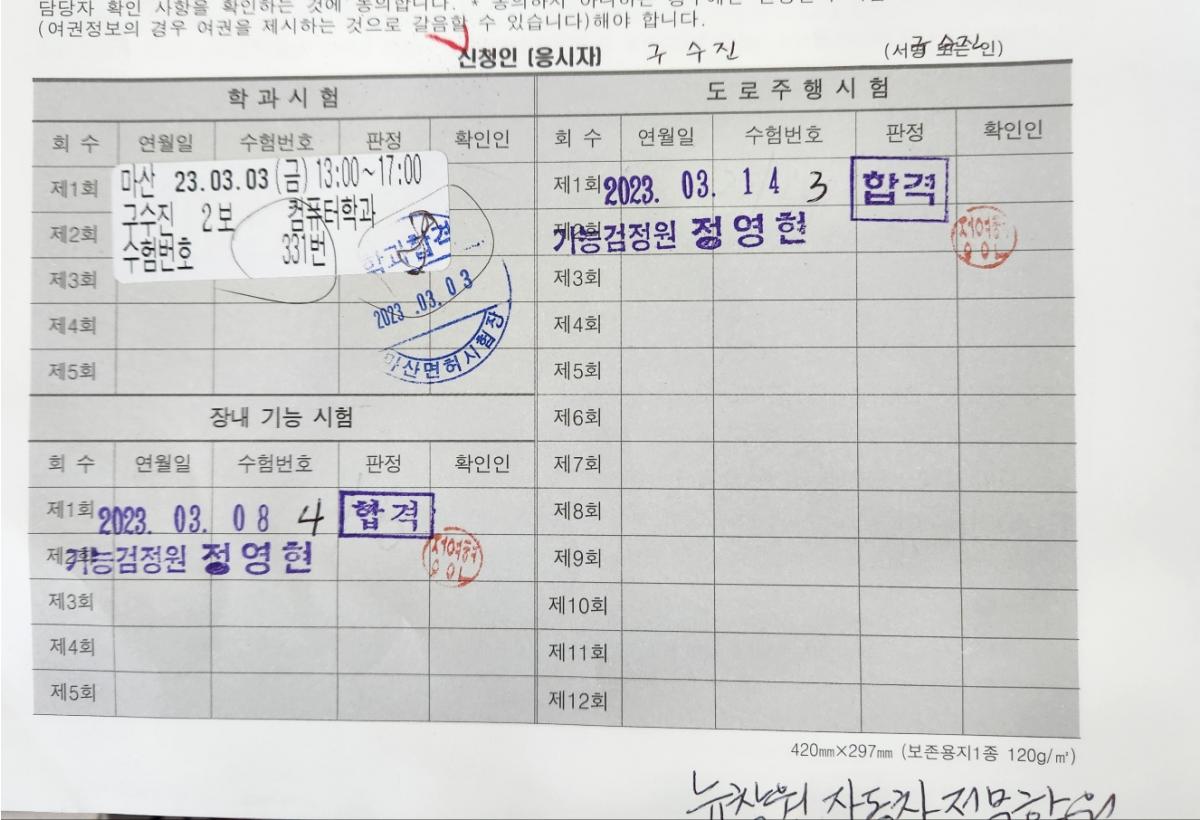 담당자 확인 사항을 확인하는 것에 동의합니다. *
(여권정보의 경우 여권을 제시하는 것으로 갈음할 수 있습니다)해야 합니다.
신청인 (응시자) 구 수 진 (서명 또는 인) 구 수진
학 과 시 험
회 수 연월일 수험번호 판정 확인인
제1회 마산 23.03.03(금) 13:00~17:00
제2회 구수진 2보 컴퓨터학과
수험번호 331번
학과합격
제3회
2023 .03. 03
제4회
마산면허시험장
제5회
장내 기능 시험
회 수 연월일 수험번호 판정 확인인
제1회 2023. 03. 08 4 합격
제2회 기능검정원 정영현
제3회
제4회
제5회
도 로 주 행 시 험
회 수 연월일 수험번호 판정 확인인
제1회 2023. 03. 14 3 합격
제2회 기능검정원 정영현
제3회
제4회
제5회
제6회
제7회
제8회
제9회
제10회
제11회
제12회
420㎜×297㎜ (보존용지1종 120g/㎡)
뉴창원 자동차전문학원